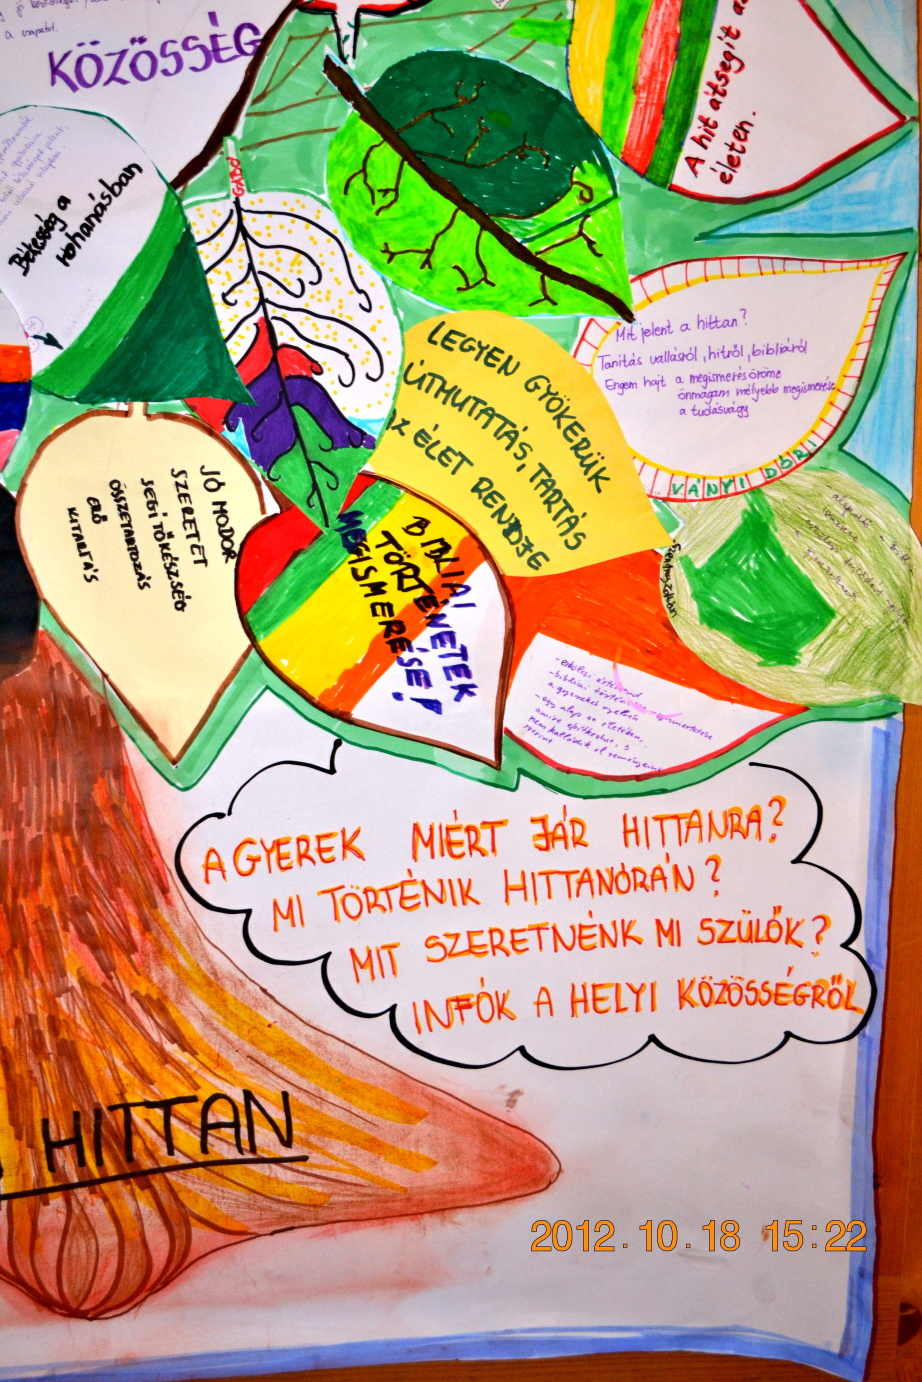 a csapatot.
KÖZÖSSÉG
A hit átsegít az
életen.
Békesség a
rohanásban
GABÓ
Mit jelent a hittan?
Tanítás vallásról, hitről, bibliáról
Engem hajt a megismerés öröme
önmagam mélyebb megismerése
a tudásvágy
VÁNYI DÓRI
LEGYEN GYÖKERÜK
ÚTMUTATÁS, TARTÁS
AZ ÉLET RENDJE
JÓ MODOR
SZERETET
SEGÍTŐKÉSZSÉG
ÖSSZETARTOZÁS
ERŐ
KITARTÁS
BIBLIAI
TÖRTÉNETEK
MEGISMERÉSE!
- erkölcsi értékrend
- bibliai történetek megismertetése
a gyerekek nyelvén
- egy alap az életében,
amire építkezhet s
nem kallódik el reményeim
szerint
A GYEREK MIÉRT JÁR HITTANRA?
MI TÖRTÉNIK HITTANÓRÁN?
MIT SZERETNÉNK MI SZÜLŐK?
INFÓK A HELYI KÖZÖSSÉGRŐL
HITTAN
2012.10.18 15:22